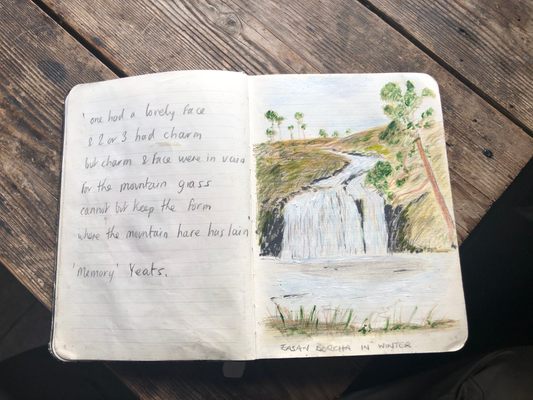 'one had a lovely face
& 2 or 3 had charm
but charm & face were in vain
for the mountain grass
cannot but keep the form
where the mountain hare has lain
'Memory' Yeats.
IN WINTER